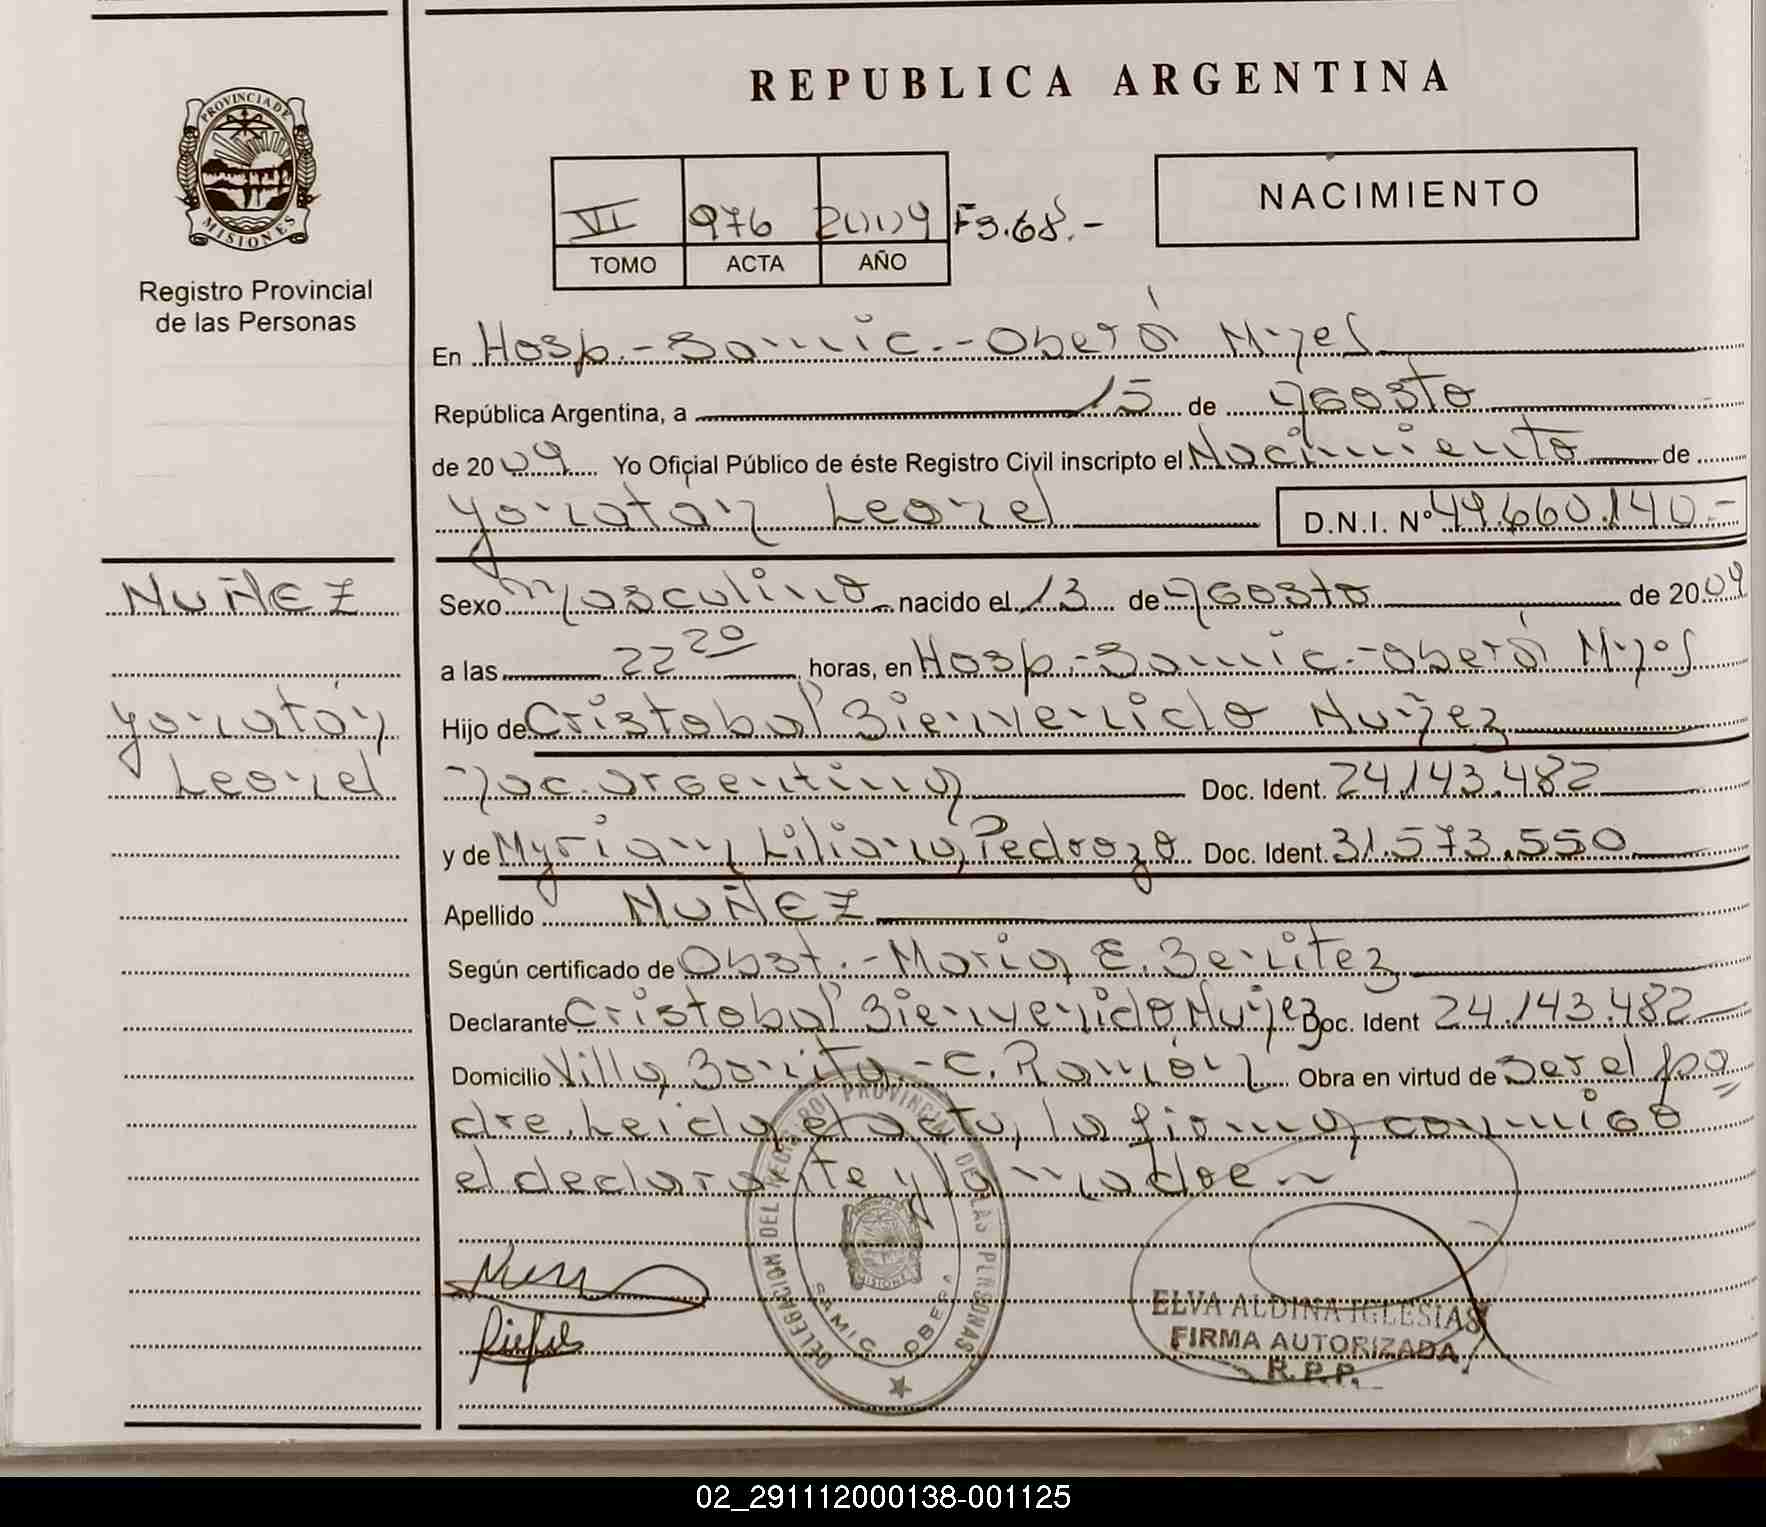 REPUBLICA ARGENTINA
PROVINCIA DE MISIONES
Registro Provincial
de las Personas
VI 976 2009 Fº.68.-
TOMO ACTA AÑO
NACIMIENTO
En Hosp.-Samic.-Oberá Mnes
República Argentina, a 15 de Agosto
de 2009 Yo Oficial Público de éste Registro Civil inscripto el Nacimiento de
Yonatán Leonel D.N.I. Nº 49.660.140.-
NUÑEZ
Yonatán
Leonel
Sexo Masculino nacido el 13 de Agosto de 2009
a las 22 20 horas, en Hosp.-Samic.-Oberá Mnes
Hijo de Cristobal Bienvenido Nuñez
nac. argentina Doc. Ident. 24.143.482
y de Myriam Liliana Pedrozo Doc. Ident. 31.573.550
Apellido NUÑEZ
Según certificado de Obst.-Maria E. Benitez
Declarante Cristobal Bienvenido Nuñez Doc. Ident 24.143.482
Domicilio Villa Bonita-C. Ramón Obra en virtud de ser el pa
dre. Leida el acta, la firma conmigo
el declarante y la madre
DELEGACION DEL REGISTRO PROVINCIAL DE LAS PERSONAS
MISIONES
SAMIC OBERA
ELVA ALDINA IGLESIAS
FIRMA AUTORIZADA
R.P.P.
02_291112000138-001125